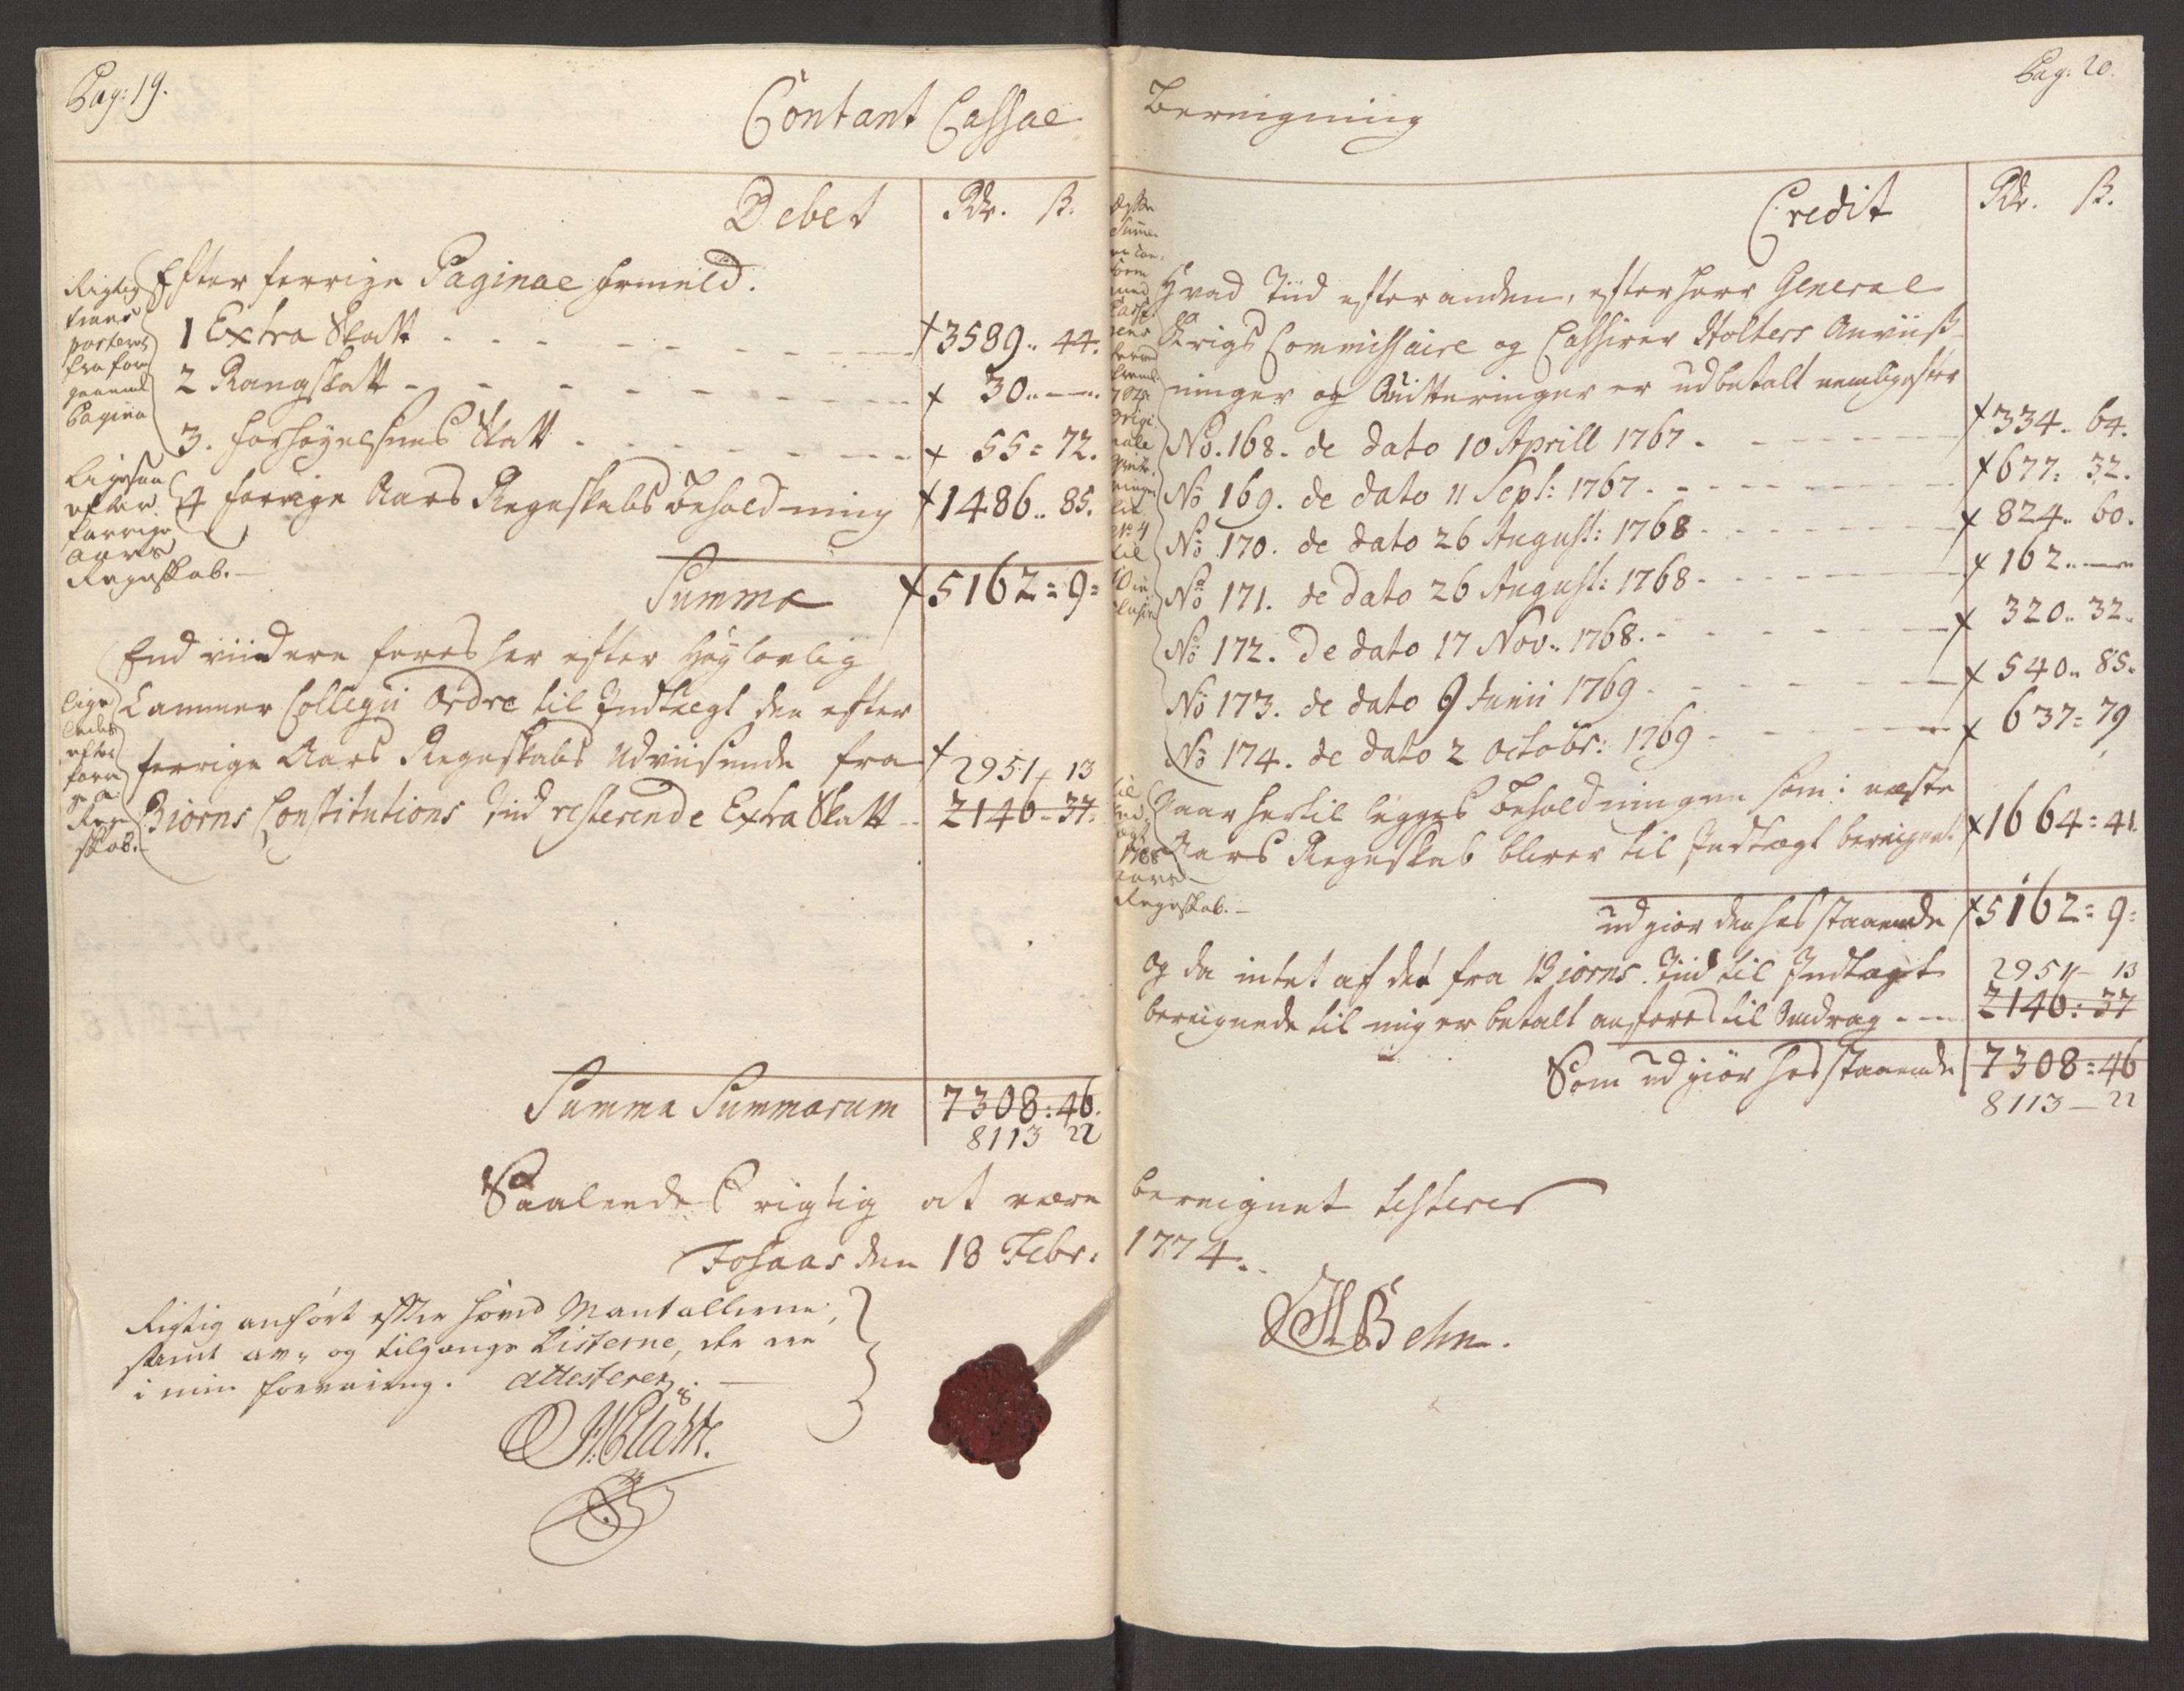 Pag: 19.
Contant Cassae
Debet
Rdr. ß.
Efter forrige Paginae formeld.
1 Extra Skatt - - - 3589 .. 44.
2 Rangskatt - - - 30 .. —
3. Forhøyelsens Skatt - - - 55 = 72.
4 forrige Aars Regnskabs Beholdning 1486 .. 85.
Summa 5162 = 9 =
End viidere føres her efter Høylovlig
Cammer Collegii Ordre til Indtægt den efter
forrige Aars Regnskabs Udviisende fra 2951 13
Biørns Constitutions Tiid resterende Extra Skatt - - 2146 - 37 =
Summa Summarum 7308 : 46.
8113 22
Saaledes rigtig at være
Fosaas den 18 Febr:
Rigtig
posteret
fra for
Pagina
Ligesaa
efter
forrige
Aars
Regnskab. —
Lige
ledes
efter
forr
Regn
skab. —
Rigtig anført efter Mantallerne,
samt av, og tilgangs Listerne, der ere
i min forvaring. attesterer. —
Pag: 20.
Beregning
Credit
Rdr. ß.
Hvad Tiid efter anden, efter Herr General
Krigs Commissaire og Cassirer Holters Anviiß
ninger og Qvitteringer er udbetalt nemlig efter
No. 168. de dato 10 Aprill 1767 - - - 334 .. 64.
No 169. de dato 11 Sept: 1767 - - - 677 : 32.
No 170. de dato 26 August: 1768 - - - 824 .. 60.
No 171. de dato 26 August: 1768 - - - 162 .. —
No 172. De dato 17 Nov .. 1768. - - - 320 .. 32.
No 173. de dato 9 Junii 1769 - - - 540 .. 85.
No 174. de dato 2 Octobr: 1769 - - - 637 = 79
Naar hertil legges Beholdningen som i næste
Aars Regnskab bliver til Indtægt beregnet 1664 = 41.
udgiør den hosstaaende 5162 = 9 =
Og da intet af det fra Biørns Tiid til Indtægt 2951 — 13
beregnede til mig er betalt anføres til Uddrag - - 2146 : 37
Som udgiør hosstaaende 7308 : 46
8113 — 22
beregnet testerer
1774.
Behn.
til
1768
Aars
Regnskab. —